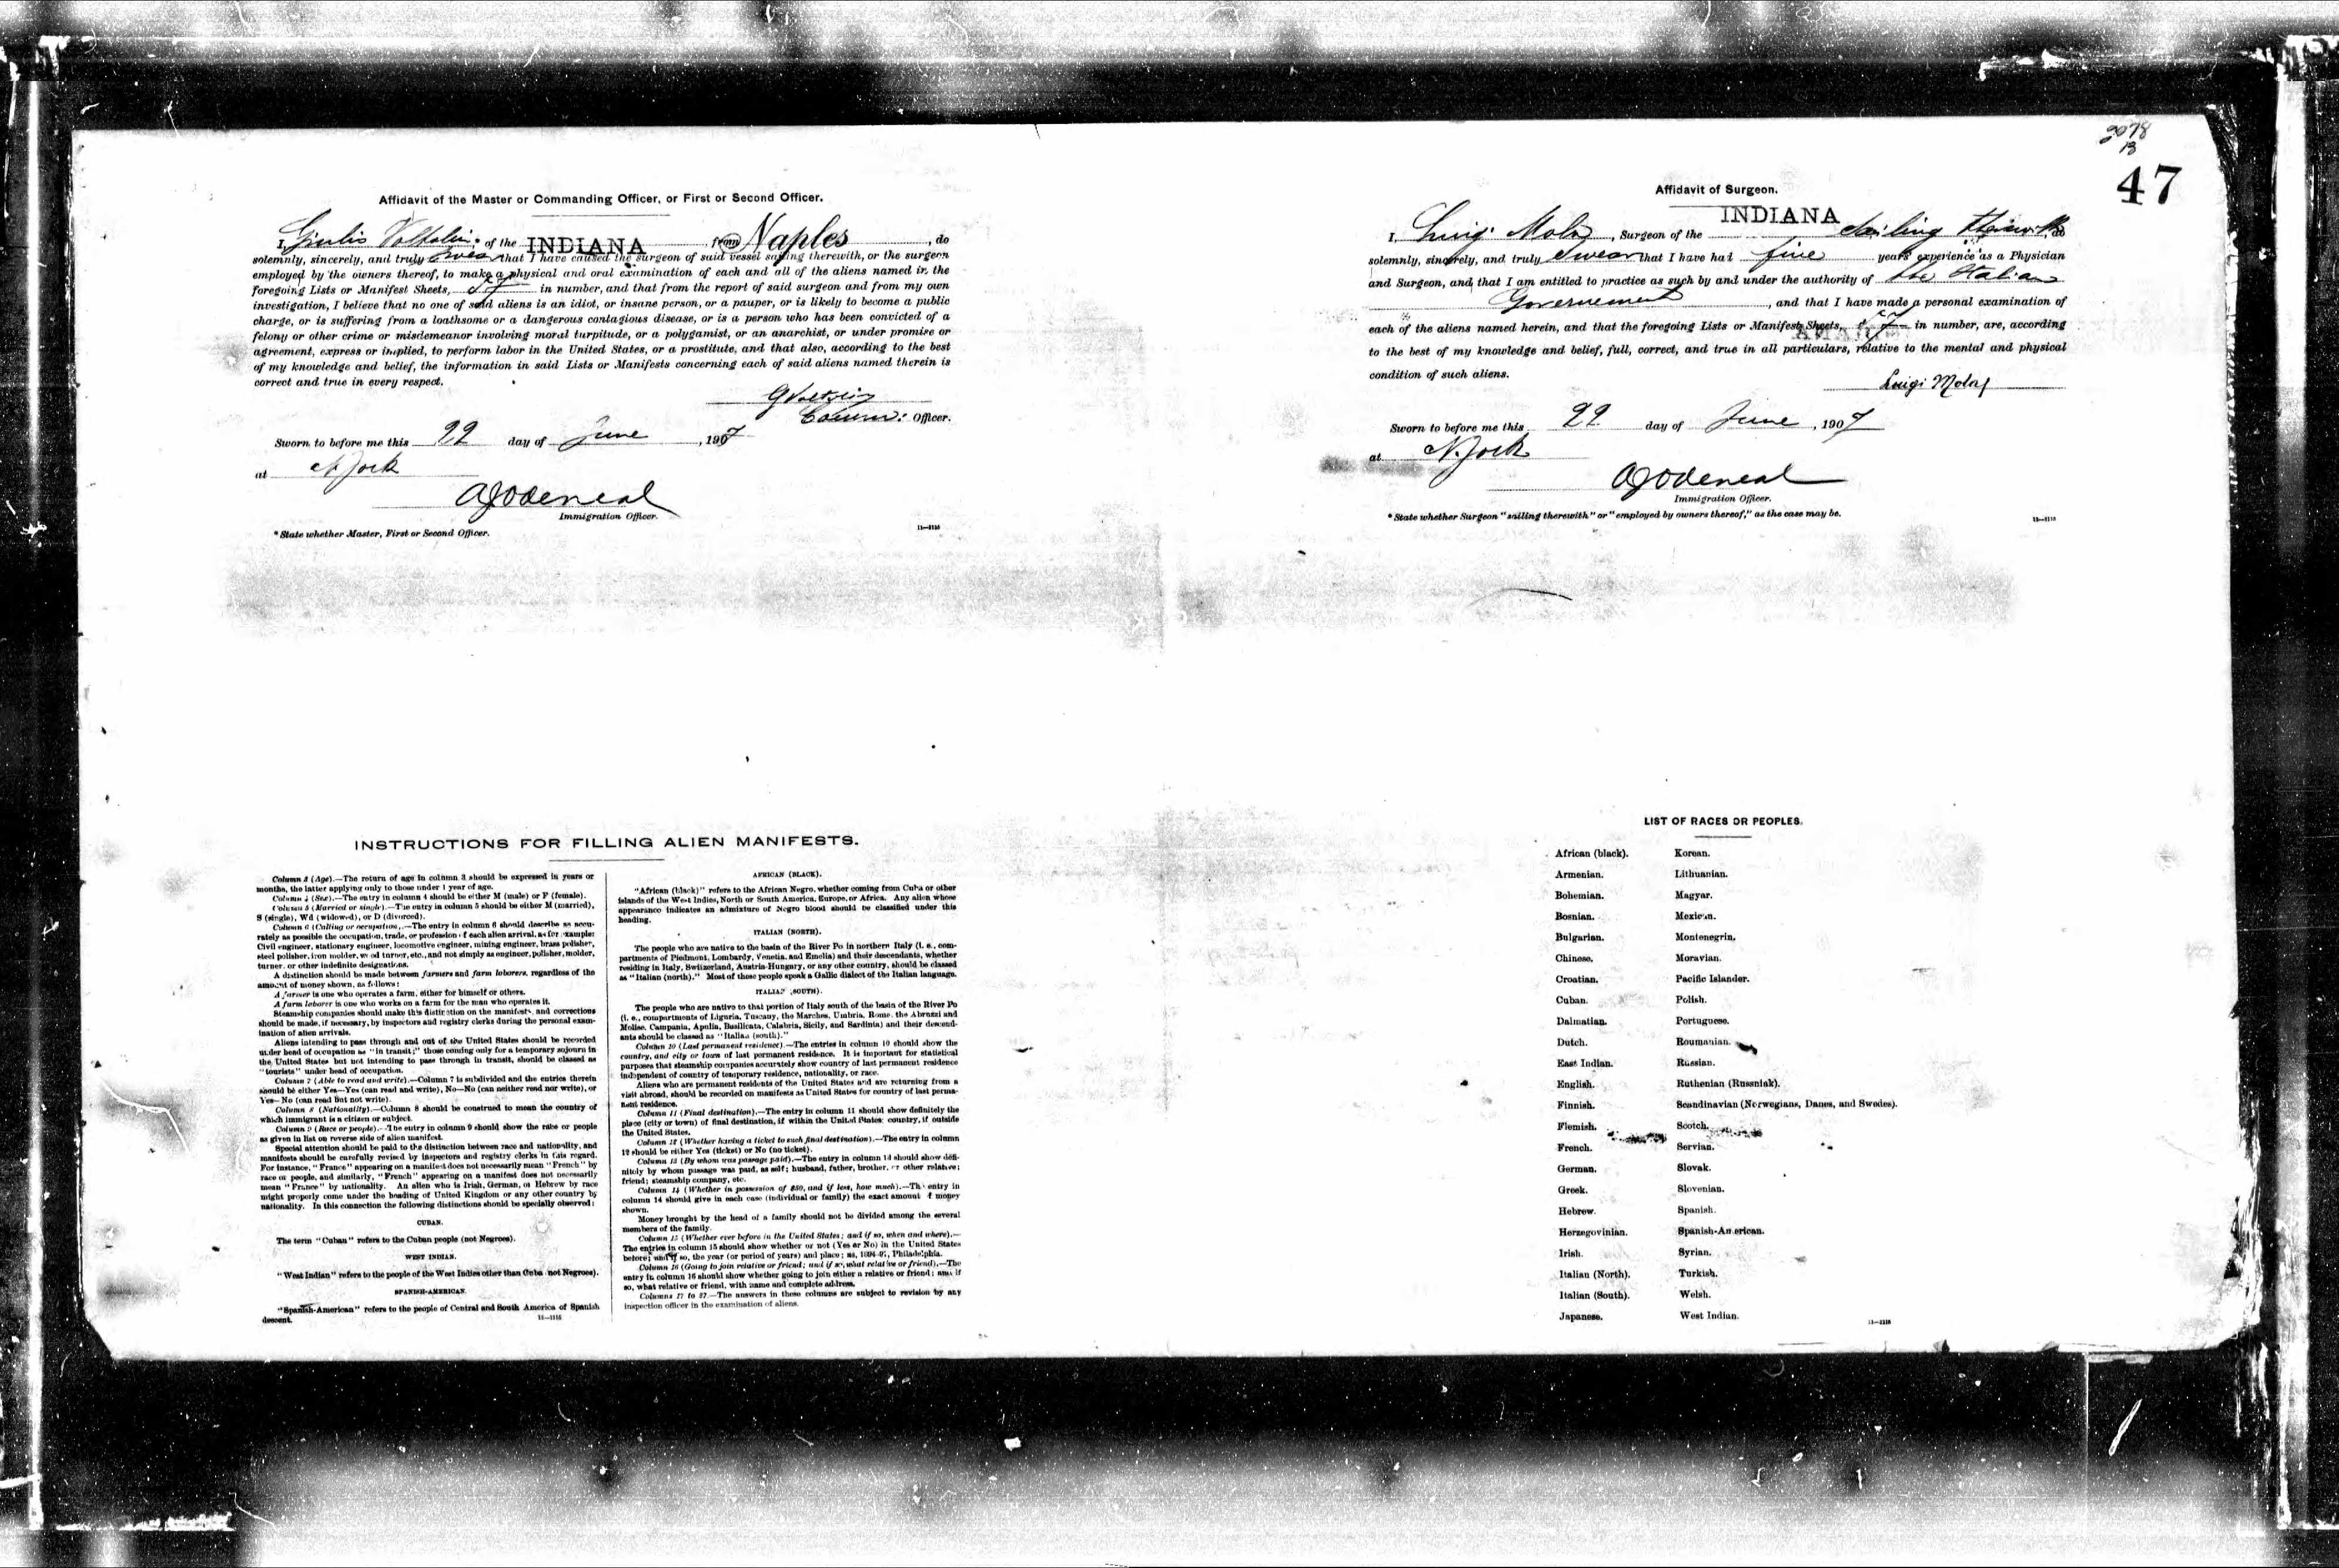 2078
13
47
Affidavit of the Master or Commanding Officer, or First or Second Officer.
I, Giulio of the INDIANA from Naples, do
solemnly, sincerely, and truly swear that I have caused the surgeon of said vessel sailing therewith, or the surgeon
employed by the owners thereof, to make a physical and oral examination of each and all of the aliens named in the
foregoing Lists or Manifest Sheets, in number, and that from the report of said surgeon and from my own
investigation, I believe that no one of said aliens is an idiot, or insane person, or a pauper, or is likely to become a public
charge, or is suffering from a loathsome or a dangerous contagious disease, or is a person who has been convicted of a
felony or other crime or misdemeanor involving moral turpitude, or a polygamist, or an anarchist, or under promise or
agreement, express or implied, to perform labor in the United States, or a prostitute, and that also, according to the best
of my knowledge and belief, the information in said Lists or Manifests concerning each of said aliens named therein is
correct and true in every respect.
Officer.
Sworn to before me this 22 day of June, 1907
at N. York
AJOdeneal
Immigration Officer.
11—1116
* State whether Master, First or Second Officer.
Affidavit of Surgeon.
INDIANA
I, Luigi Mola, Surgeon of the sailing therewith, do
solemnly, sincerely, and truly swear that I have had five years' experience as a Physician
and Surgeon, and that I am entitled to practice as such by and under the authority of the Italian
Governement, and that I have made a personal examination of
each of the aliens named herein, and that the foregoing Lists or Manifest Sheets, in number, are, according
to the best of my knowledge and belief, full, correct, and true in all particulars, relative to the mental and physical
condition of such aliens.
Luigi Mola
Sworn to before me this 22 day of June, 1907
at N. York
AJOdeneal
Immigration Officer.
* State whether Surgeon "sailing therewith" or "employed by owners thereof," as the case may be.
11—1116
INSTRUCTIONS FOR FILLING ALIEN MANIFESTS.
Column 3 (Age).—The return of age in column 3 should be expressed in years or
months, the latter applying only to those under 1 year of age.
Column 4 (Sex).—The entry in column 4 should be either M (male) or F (female).
Column 5 (Married or single).—The entry in column 5 should be either M (married),
S (single), Wd (widowed), or D (divorced).
Column 6 (Calling or occupation).—The entry in column 6 should describe as accu-
rately as possible the occupation, trade, or profession of each alien arrival, as for example:
Civil engineer, stationary engineer, locomotive engineer, mining engineer, brass polisher,
steel polisher, iron molder, wood turner, etc., and not simply as engineer, polisher, molder,
turner, or other indefinite designations.
A distinction should be made between farmers and farm laborers, regardless of the
amount of money shown, as follows:
A farmer is one who operates a farm, either for himself or others.
A farm laborer is one who works on a farm for the man who operates it.
Steamship companies should make this distinction on the manifests, and corrections
should be made, if necessary, by inspectors and registry clerks during the personal exam-
ination of alien arrivals.
Aliens intending to pass through and out of the United States should be recorded
under head of occupation as "in transit;" those coming only for a temporary sojourn in
the United States but not intending to pass through in transit, should be classed as
"tourists" under head of occupation.
Column 7 (Able to read and write).—Column 7 is subdivided and the entries therein
should be either Yes—Yes (can read and write), No—No (can neither read nor write), or
Yes—No (can read but not write).
Column 8 (Nationality).—Column 8 should be construed to mean the country of
which immigrant is a citizen or subject.
Column 9 (Race or people).—The entry in column 9 should show the race or people
as given in list on reverse side of alien manifest.
Special attention should be paid to the distinction between race and nationality, and
manifests should be carefully revised by inspectors and registry clerks in this regard.
For instance, "France" appearing on a manifest does not necessarily mean "French" by
race or people, and similarly, "French" appearing on a manifest does not necessarily
mean "France" by nationality. An alien who is Irish, German, or Hebrew by race
might properly come under the heading of United Kingdom or any other country by
nationality. In this connection the following distinctions should be specially observed:
CUBAN.
The term "Cuban" refers to the Cuban people (not Negroes).
WEST INDIAN.
"West Indian" refers to the people of the West Indies other than Cuba (not Negroes).
SPANISH-AMERICAN.
"Spanish-American" refers to the people of Central and South America of Spanish
descent.
11—1116
AFRICAN (BLACK).
"African (black)" refers to the African Negro, whether coming from Cuba or other
islands of the West Indies, North or South America, Europe, or Africa. Any alien whose
appearance indicates an admixture of Negro blood should be classified under this
heading.
ITALIAN (NORTH).
The people who are native to the basin of the River Po in northern Italy (i. e., com-
partments of Piedmont, Lombardy, Venetia, and Emelia) and their descendants, whether
residing in Italy, Switzerland, Austria-Hungary, or any other country, should be classed
as "Italian (north)." Most of these people speak a Gallic dialect of the Italian language.
ITALIAN (SOUTH).
The people who are native to that portion of Italy south of the basin of the River Po
(i. e., compartments of Liguria, Tuscany, the Marches, Umbria, Rome, the Abruzzi and
Molise, Campania, Apulia, Basilicata, Calabria, Sicily, and Sardinia) and their descend-
ants should be classed as "Italian (south)."
Column 10 (Last permanent residence).—The entries in column 10 should show the
country, and city or town of last permanent residence. It is important for statistical
purposes that steamship companies accurately show country of last permanent residence
independent of country of temporary residence, nationality, or race.
Aliens who are permanent residents of the United States and are returning from a
visit abroad, should be recorded on manifests as United States for country of last perma-
nent residence.
Column 11 (Final destination).—The entry in column 11 should show definitely the
place (city or town) of final destination, if within the United States; country, if outside
the United States.
Column 12 (Whether having a ticket to such final destination).—The entry in column
12 should be either Yes (ticket) or No (no ticket).
Column 13 (By whom was passage paid).—The entry in column 13 should show defi-
nitely by whom passage was paid, as self; husband, father, brother, or other relative;
friend; steamship company, etc.
Column 14 (Whether in possession of $50, and if less, how much).—The entry in
column 14 should give in each case (individual or family) the exact amount of money
shown.
Money brought by the head of a family should not be divided among the several
members of the family.
Column 15 (Whether ever before in the United States; and if so, when and where).—
The entries in column 15 should show whether or not (Yes or No) in the United States
before; and if so, the year (or period of years) and place; as, 1894-97, Philadelphia.
Column 16 (Going to join relative or friend; and if so, what relative or friend).—The
entry in column 16 should show whether going to join either a relative or friend; and if
so, what relative or friend, with name and complete address.
Columns 17 to 27.—The answers in these columns are subject to revision by any
inspection officer in the examination of aliens.
LIST OF RACES OR PEOPLES.
African (black). Korean.
Armenian. Lithuanian.
Bohemian. Magyar.
Bosnian. Mexican.
Bulgarian. Montenegrin.
Chinese. Moravian.
Croatian. Pacific Islander.
Cuban. Polish.
Dalmatian. Portuguese.
Dutch. Roumanian.
East Indian. Russian.
English. Ruthenian (Russniak).
Finnish. Scandinavian (Norwegians, Danes, and Swedes).
Flemish. Scotch.
French. Servian.
German. Slovak.
Greek. Slovenian.
Hebrew. Spanish.
Herzegovinian. Spanish-American.
Irish. Syrian.
Italian (North). Turkish.
Italian (South). Welsh.
Japanese. West Indian.
11—1116